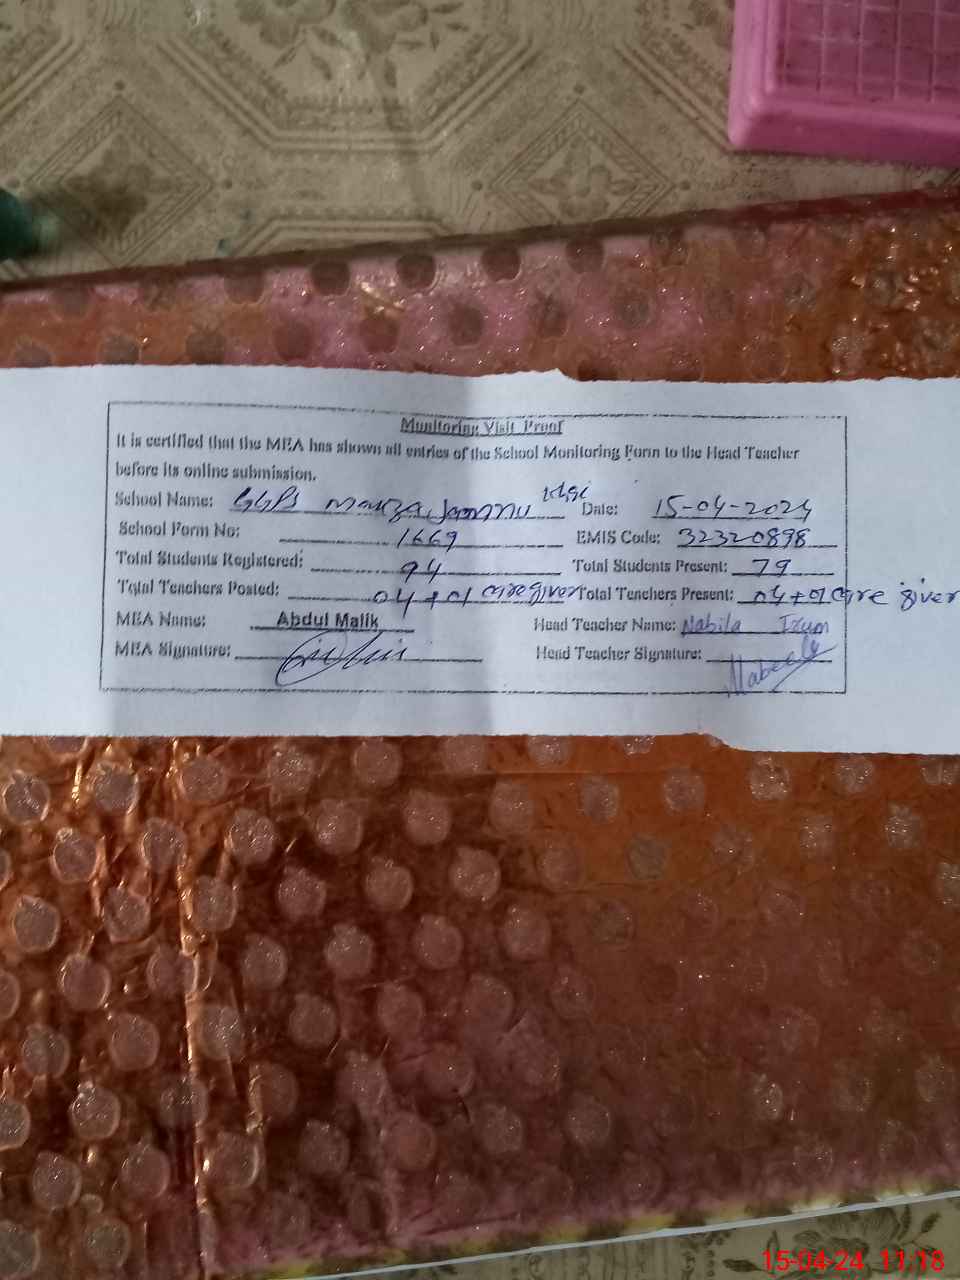 Monitoring Visit Proof
It is certified that the MEA has shown all entries of the School Monitoring Form to the Head Teacher
before its online submission.
School Name: GGPS Mouza Jammu Date: 15-04-2024
School Form No: 1669 EMIS Code: 32320898
Total Students Registered: 94 Total Students Present: 79
Total Teachers Posted: 04+01 caregiver Total Teachers Present: 04+01 care giver
MEA Name: Abdul Malik Head Teacher Name: Nabila Izum
MEA Signature: Head Teacher Signature: Nabeela
15-04-24 11:18